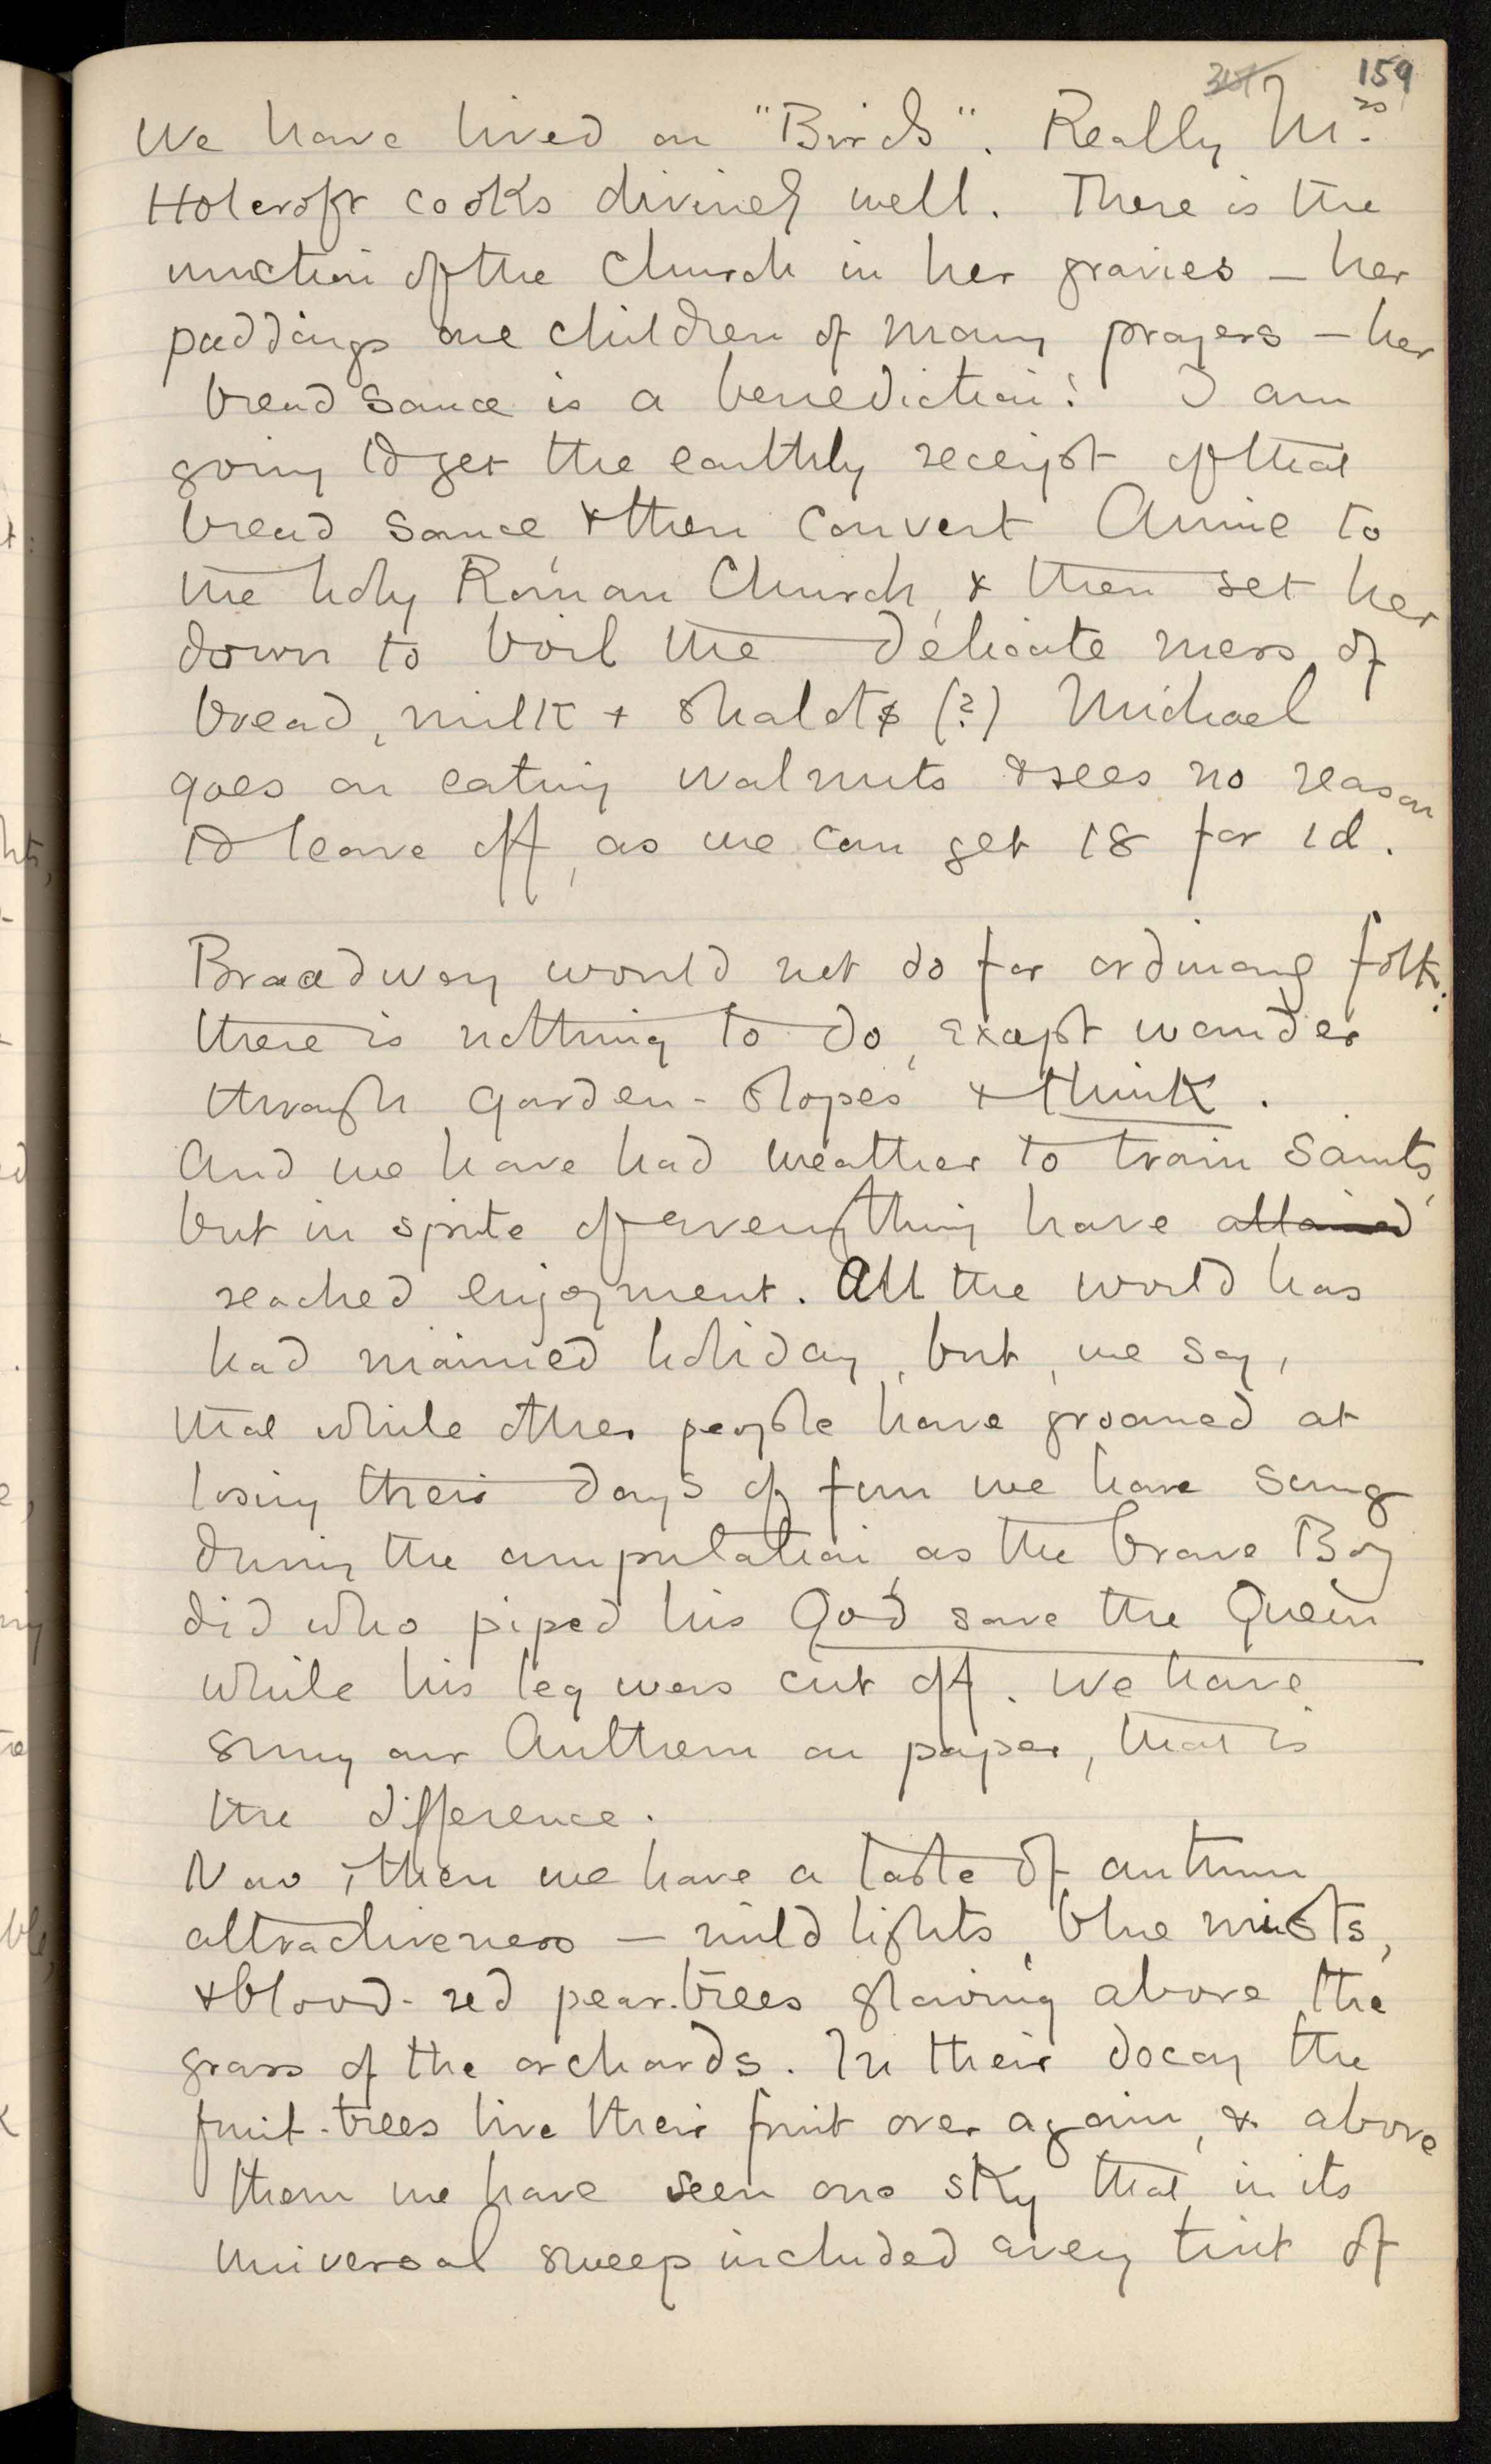 159
We have lived on "Birds". Really Mrs
Holcroft cooks divinely well. There is the
unction of the Church in her gravies – her
puddings are children of many prayers – her
bread sauce is a benediction! I am
going to get the earthly receipt of that
bread sauce, & then convert Annie to
the holy Roman Church, & then set her
down to boil the delicate mess of
bread, milk + shalots (?) Michael
goes on eating walnuts & sees no reason
to leave off, as we can get 18 for 1d.
Broadway would not do for ordinary folk:
there is nothing to do, except wander
through garden-slopes & think.
And we have had weather to train saints,
but in spite of everything have attained
reached enjoyment. All the world has
had maimed holiday, but, we say,
that while other people have groaned at
losing their days of fun we have sung
during the amputation, as the brave Boy
did who piped his God save the Queen
while his leg was cut off. We have
sung our Anthem on paper, that is
the difference.
Now & then we have a taste of autumn
attractiveness – mild lights, blue mists,
& blood-red pear-trees glowing above the
grass of the orchards. In their decay the
fruit-trees live their fruit over again, & above
them we have seen one sky that in its
universal sweep included every tint of